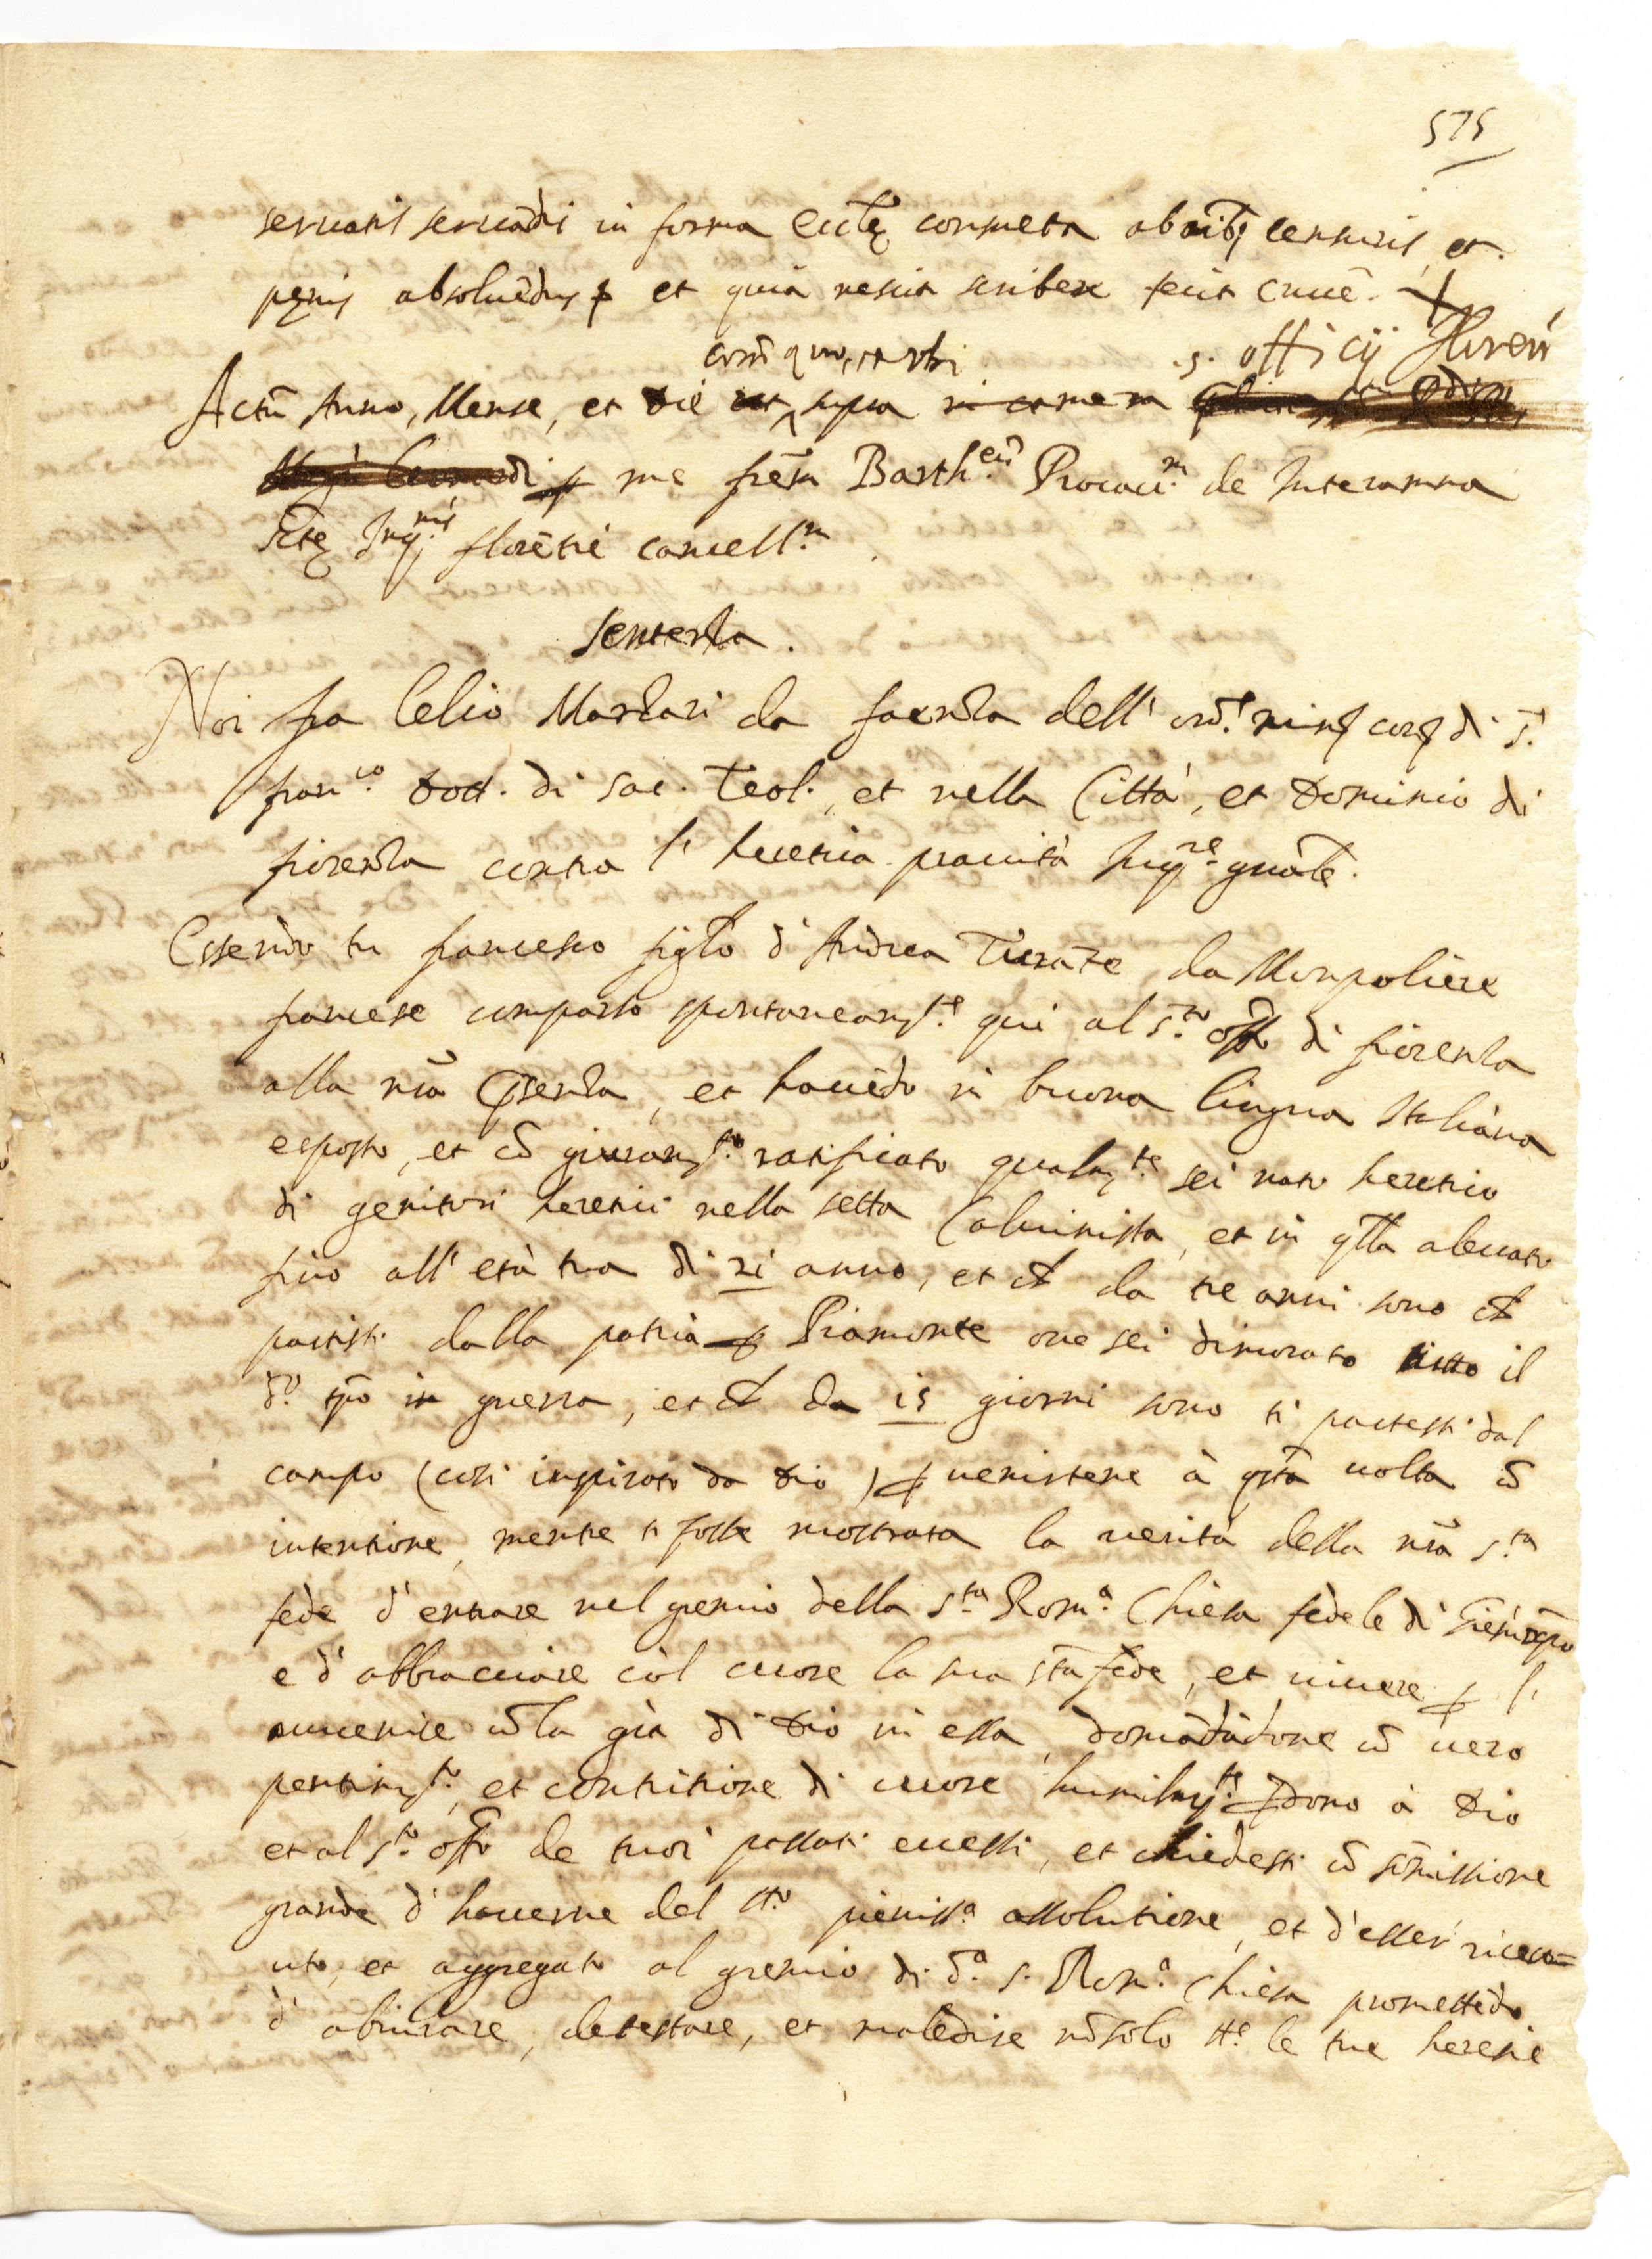 575
seruatis seruādi in forma Eccłę consueta ab oībꝫ censuris, et
pęnis absoluēdus et quia nescit scribere fecit crucē. +
coram quo, et ubi s. officij Floren
Actū Anno, Mense, et die supra in camera
me frēm Barth.eū Procacc.m de Interamna
Sctę Inq.nis florētię cancell.m
Sentenza.
Noi fra Celio Marzari da faenza dell' ord.e min. conu. di S.
fran.co Dott. di Sac. Teol. et nella Città, et Dominio di
fiorenza contra l' heretica prauità Inq.re gnāle.
Essendo tu francesco figło d' Andrea da Monpoliere
francese comparso spontaneam.te qui al S.to Offo di fiorenza
alla nrā p̄senza, et hauēdo in buona lingua Italiana
esposto, et cō giuram.to ratificato qualm.te sei nato heretico
di genitori heretici nella setta Caluinista, et in qlla aleuato
fino all' età tua di 21 anno, et ch da tre anni sono ch
partisti dalla patria p Piamonte oue sei dimorato tutto il
d.o tpō in guerra, et ch da 15 giorni sono ti partesti dal
campo (cosi inspirato da Dio) p uenirtene à qsta uolta cō
intentione, mentre ti fosse mostrata la uerità della nrā S.ta
fede d' entrare nel gremio della S.ta Rom.a Chiesa fedele di
e d' abbracciare col cuore la sua sta fede, et uiuere p l'
auuenire cō la grā di Dio in ella, domādādone cō uero
pentim.to, et contritione di cuore humilm.te p̱dono à Dio
et al S.to Offo de tuoi passati eccessi, et chiedesti cō sōmissione
grande d' hauerne del tt.o pieniss.a assolutione, et d' esser riceu=
uto, et aggregato al gremio di d.a S. Rom.a Chiesa promettēdo
d' abiurare, detestare, et maledire nō solo tt.e le tue heresie